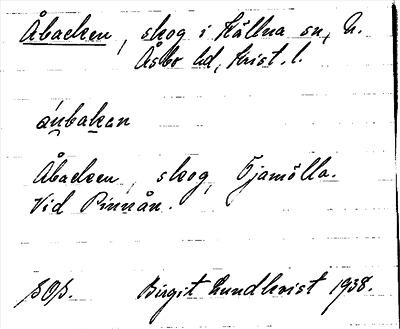 Åbacken, skog i Källna sn, N.
Åsbo hd, Krist. l.
Åbacken, skog, Öjamölla.
Vid Pinnån.
Birgit Lundkvist 1938.